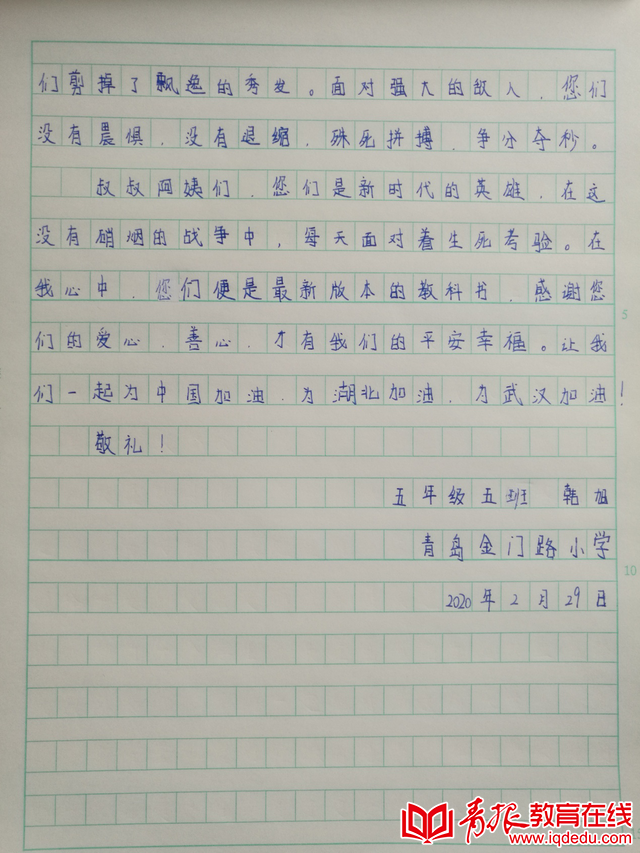 们剪掉了飘逸的秀发。面对强大的敌人、您们
没有畏惧、没有退缩、殊死拼搏、争分夺秒。
叔叔阿姨们、您们是新时代的英雄、在这
没有硝烟的战争中,每天面对着生死考验。在
我心中、您们便是最新版本的教科书、感谢您
们的爱心、善心、才有我们的平安幸福。让我
们一起为中国加油、为湖北加油、为武汉加油!
敬礼!
五年级五班 韩旭
青岛金门路小学
2020年2月29日
5
10
青报教育在线
www.iqdedu.com